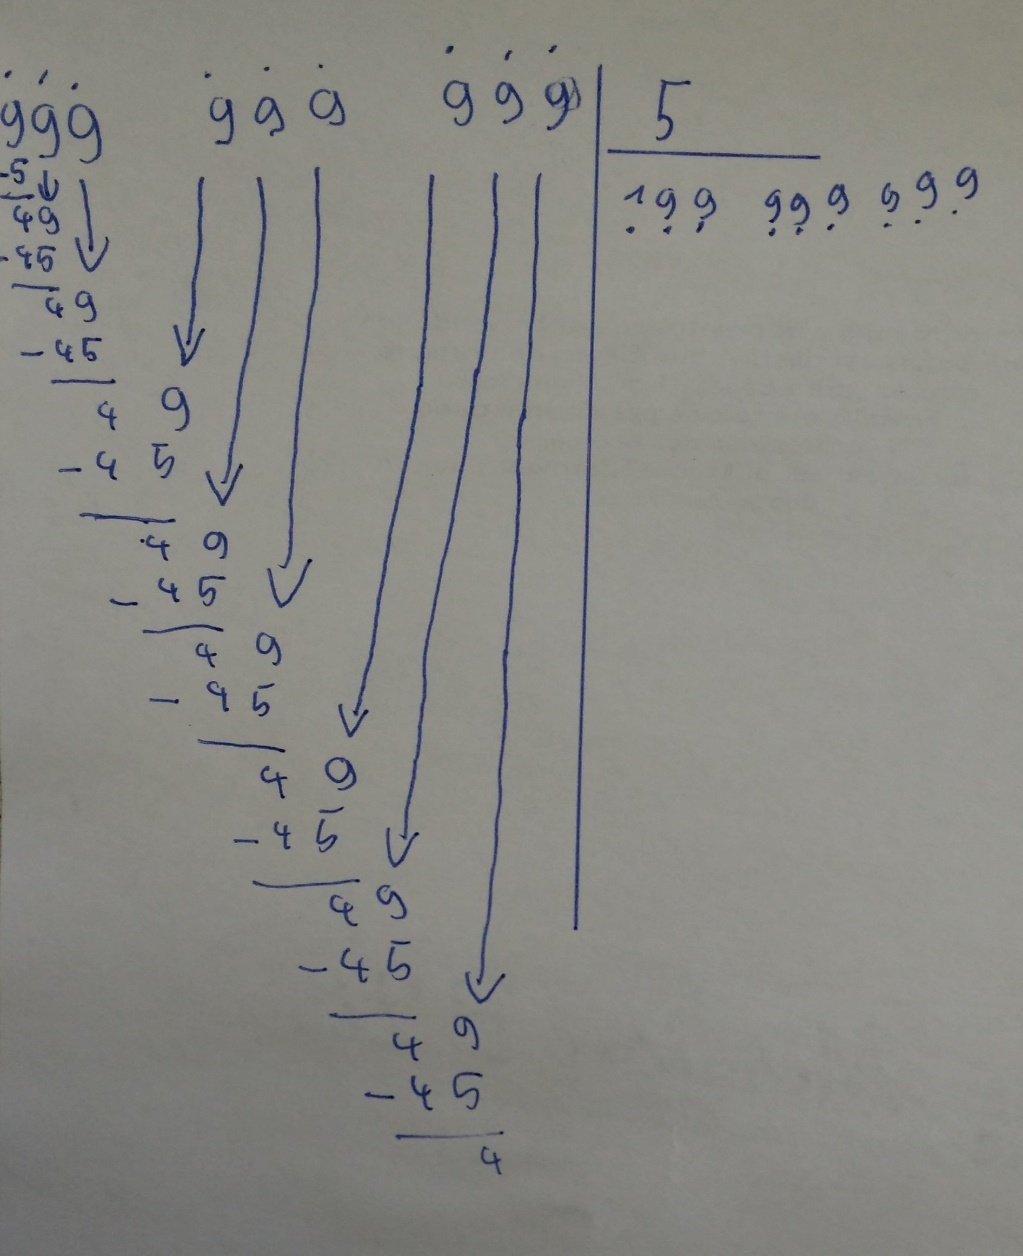 999 999 999 5
-5 199 999 999
49
-45
49
-45
4 9
-4 5
4 9
-4 5
4 9
-4 5
4 9
-4 5
4 9
-4 5
4 9
-4 5
4